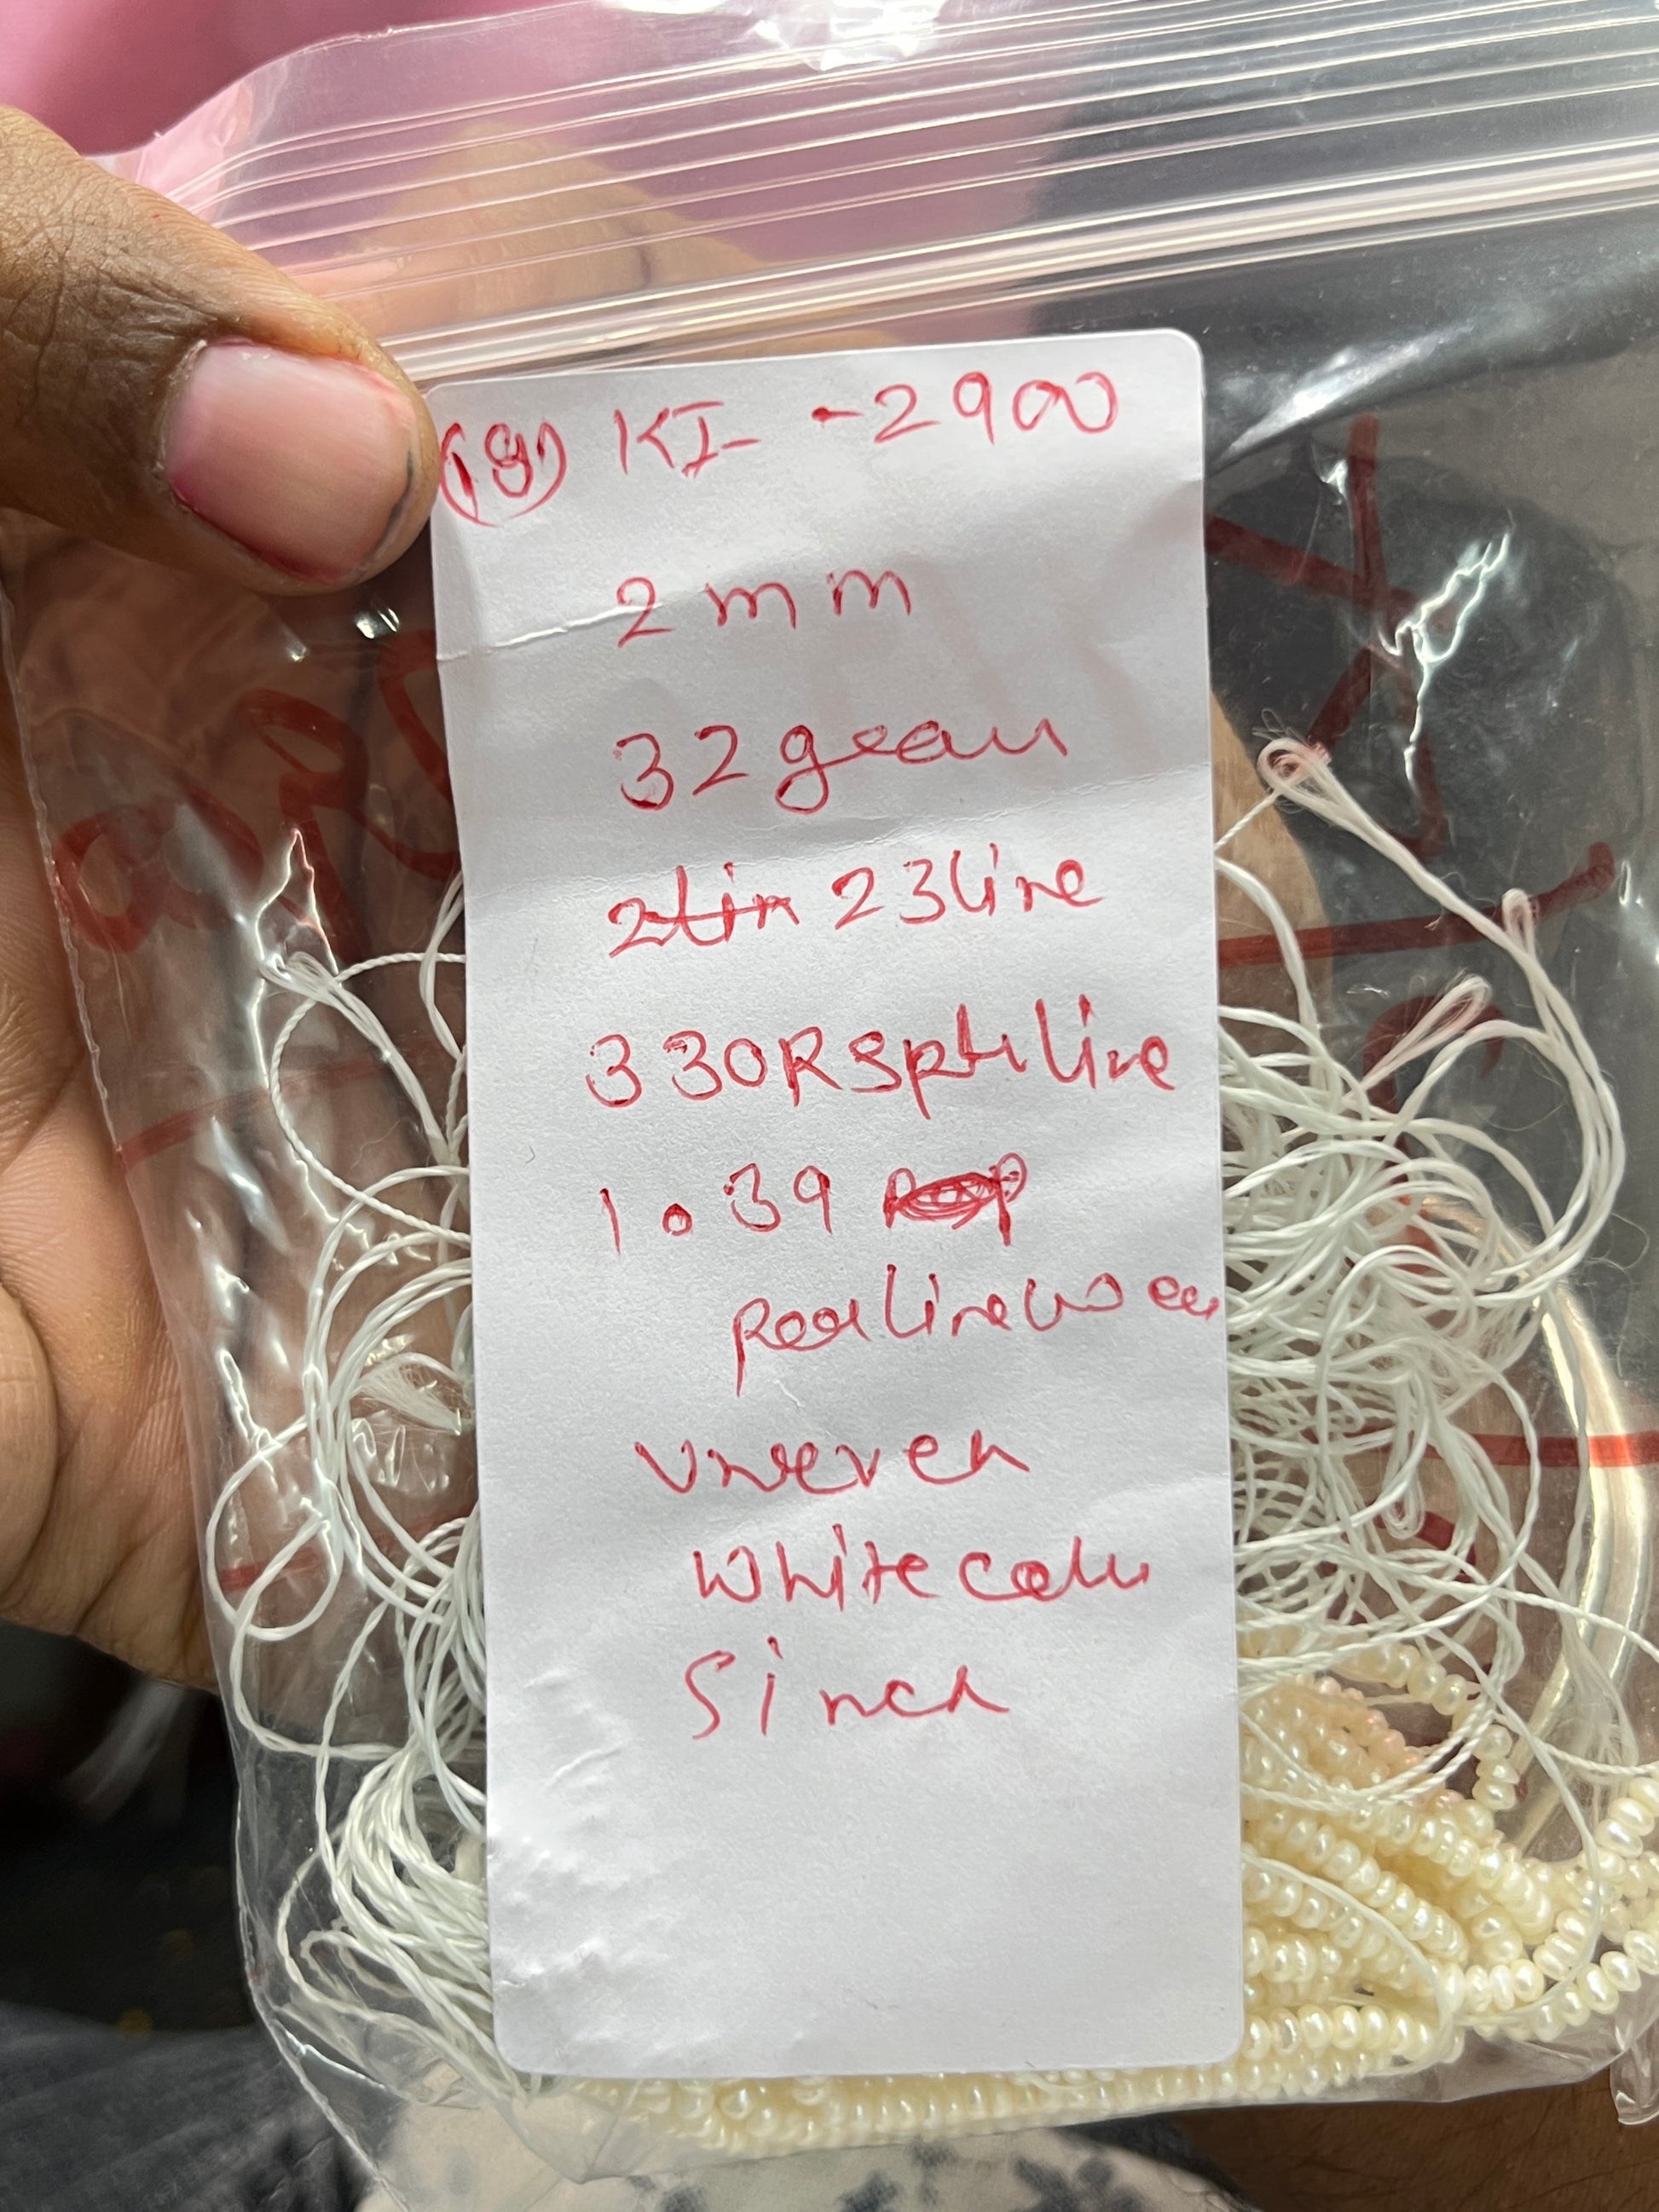 (18) KI- -2900
2mm
32gram
2lin 23line
330RS line
1.39
per line
uneven
white color
5 inch